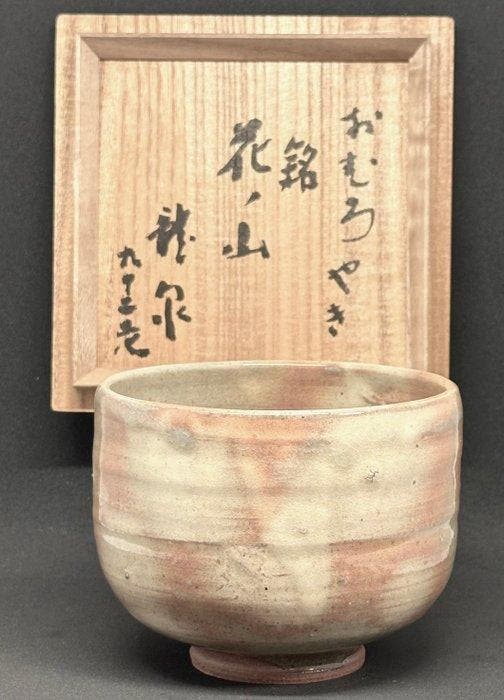 おむろやき
銘
花ノ山
龍泉
九十二老